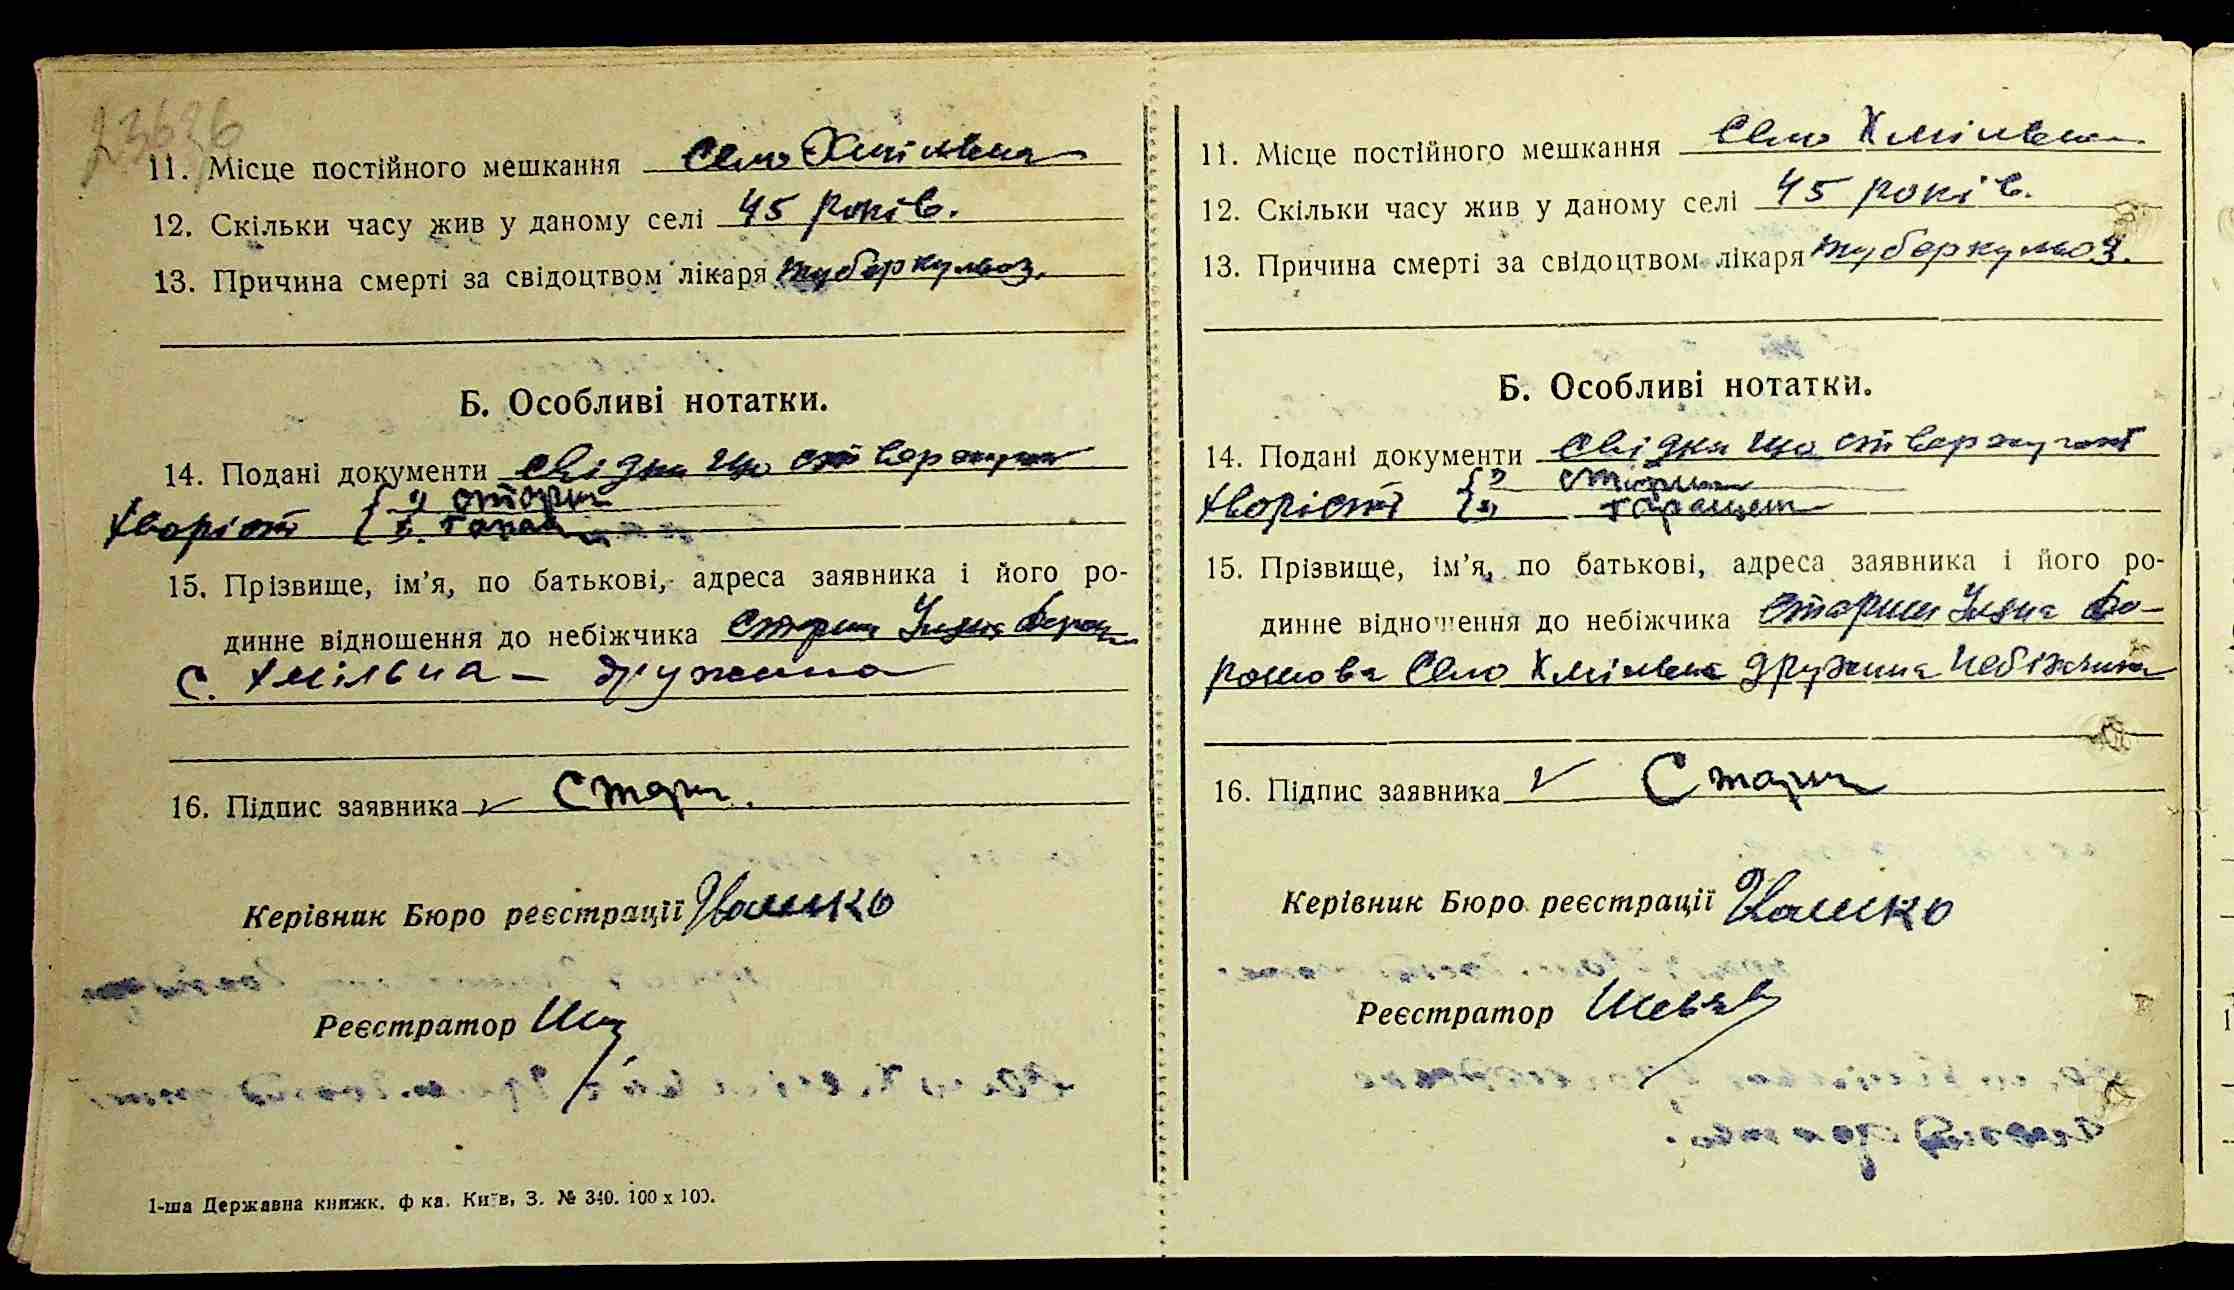 23636
11. Місце постійного мешкання Село Хмільна
12. Скільки часу жив у даному селі 45 років.
13. Причина смерті за свідоцтвом лікаря туберкульоз.
Б. Особливі нотатки.
14. Подані документи свідки що стверджують
хворість { 1)
2.
15. Прізвище, ім'я, по батькові, адреса заявника і його ро-
динне відношення до небіжчика
с. Хмільна – дружина
16. Підпис заявника
Керівник Бюро реєстрації Івашко
Реєстратор
1-ша Державна книжк. ф ка. Київ, З. № 340. 100 х 100.
11. Місце постійного мешкання Село Хмільна
12. Скільки часу жив у даному селі 45 років.
13. Причина смерті за свідоцтвом лікаря туберкульоз.
Б. Особливі нотатки.
14. Подані документи свідки що стверджують
хворість {
15. Прізвище, ім'я, по батькові, адреса заявника і його ро-
динне відношення до небіжчика
Село Хмільна дружина небіжчика
16. Підпис заявника
Керівник Бюро реєстрації Івашко
Реєстратор